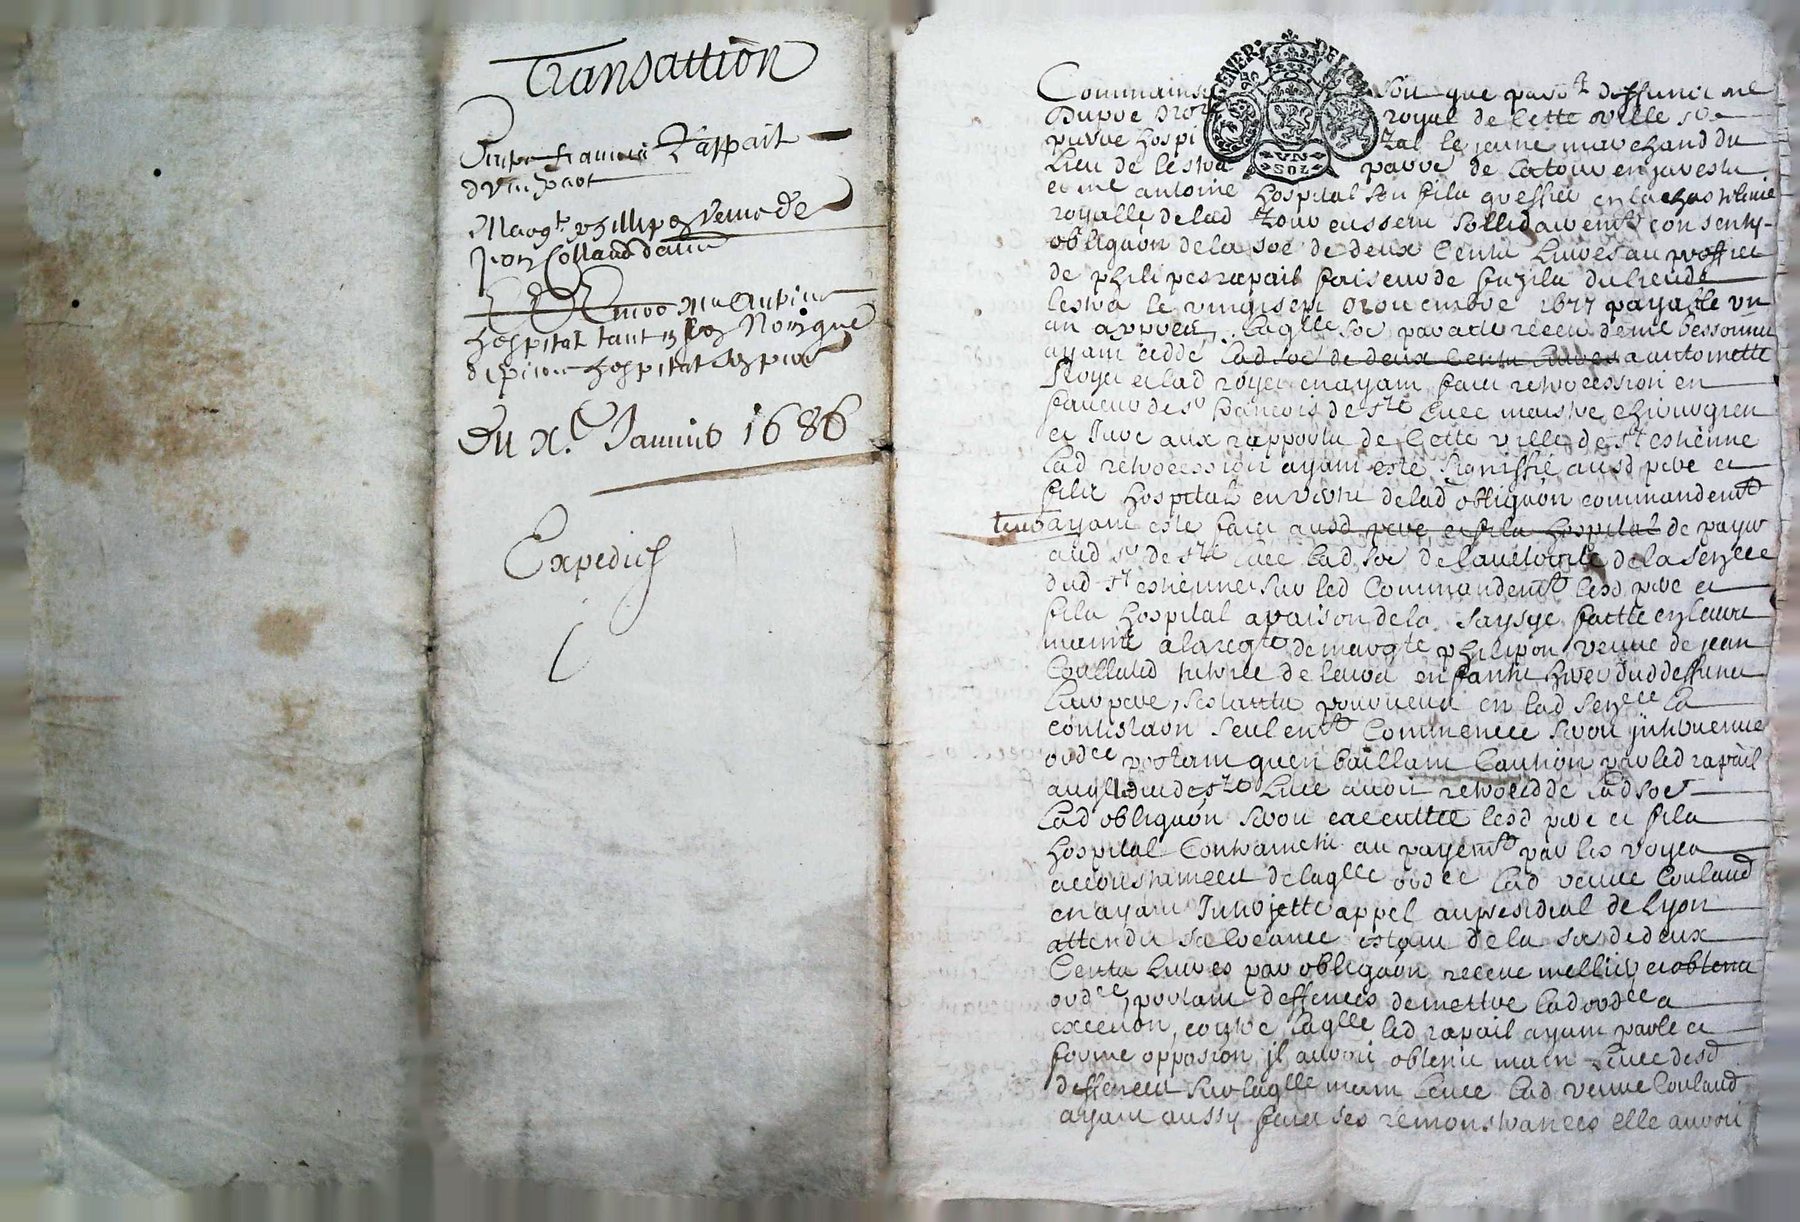 Transaction
Entre francois Rappait
d'une part
Margte phillipon veuve de
Jean Colland d'autre
Et Encor Me Antoine
hospital tant en son Nom que
de pierre hospital son pere
Du xe Janvier 1686
Expedié
GENER DE LYON
VN
SOL
Comme ainsy soit que pardt deffunct me
Dupuy nore royal de cette ville sr
pierre hospital le jeune marchand du
lieu de lestra parre de latour en jarestz
et me antoine hospital son fils greffier en la chastelnie
royalle de lad tour eussent sollidairemt consenty
obligaon de la soe de deux Cents livres au proffict
de philipes rapail faiseur de fuzils du lieu de
lestra le vingt sept novembre 1677 payable un
an apprès, laqlle soe par acte receu de me bessonnet
ayant cedde lad soe de deux Cents livres a antoinette
Royer et lad royer en ayant faict retrocession en
faveur de sr francois de ste luce maistre chirurgien
et Juré aux rapports de Cette ville de st estienne
lad retrocession ayant esté signiffié ausd pere et
fils hospital en vertu de lad obligaon commandemt
leur ayant esté faict ausd pere et fils hospital de payer
aud sr de ste luce lad soe de lauthorité de la senece
dud st estienne sur led Commandemt lesd pere et
fils hospital a raison de la saysye faitte en leurs
mains a la reqte de margte philipon veuve de jean
Coulland tutrice de leurs enfants hers dud deffunct
leur pere, seroient pourveus en lad senece la
contestaon seulemt Commencee seroit intervenue
ordce portant quen baillant Caution par led rapail
auql led sr de ste luce avoit retrocedde lad soe
lad obligaon seroit executtée lesd pere et fils
hospital Contraints au payemt par les voyes
accoustumees de laqlle ordce lad veuve Couland
en ayant Interjette appel au presidial de Lyon
attendu sa creance estant de la soe de deux
Cents livres par obligaon receue mellier et obtenu
ordce portant deffences de mettre lad ordce a
execuon, contre laqlle led rapail ayant parle et
forme opposion, il auroit obtenu main levee desd
deffences sur laqlle main levee lad veuve Couland
ayant aussy faict ses remonstrances elle auroit